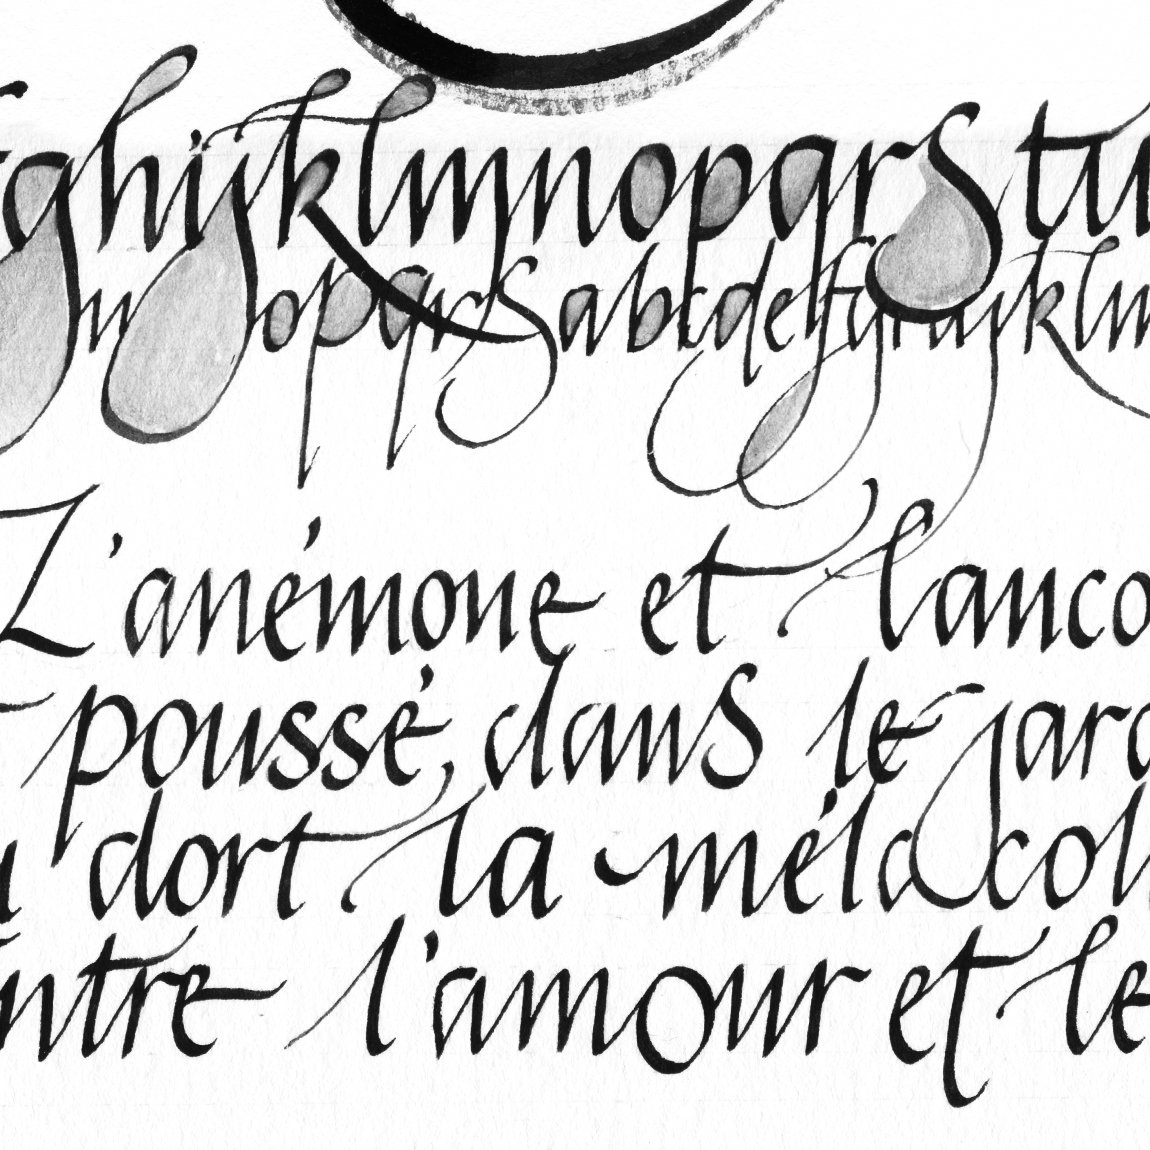 fghijklmnopqrstu
mnopqrsabcdefghijklm
L'anémone et l'anco
poussé dans le jard
dort la mélancol
entre l'amour et le